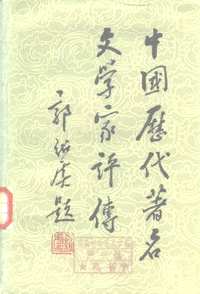 中國歷代著名
文学家評傳
郭绍虞题